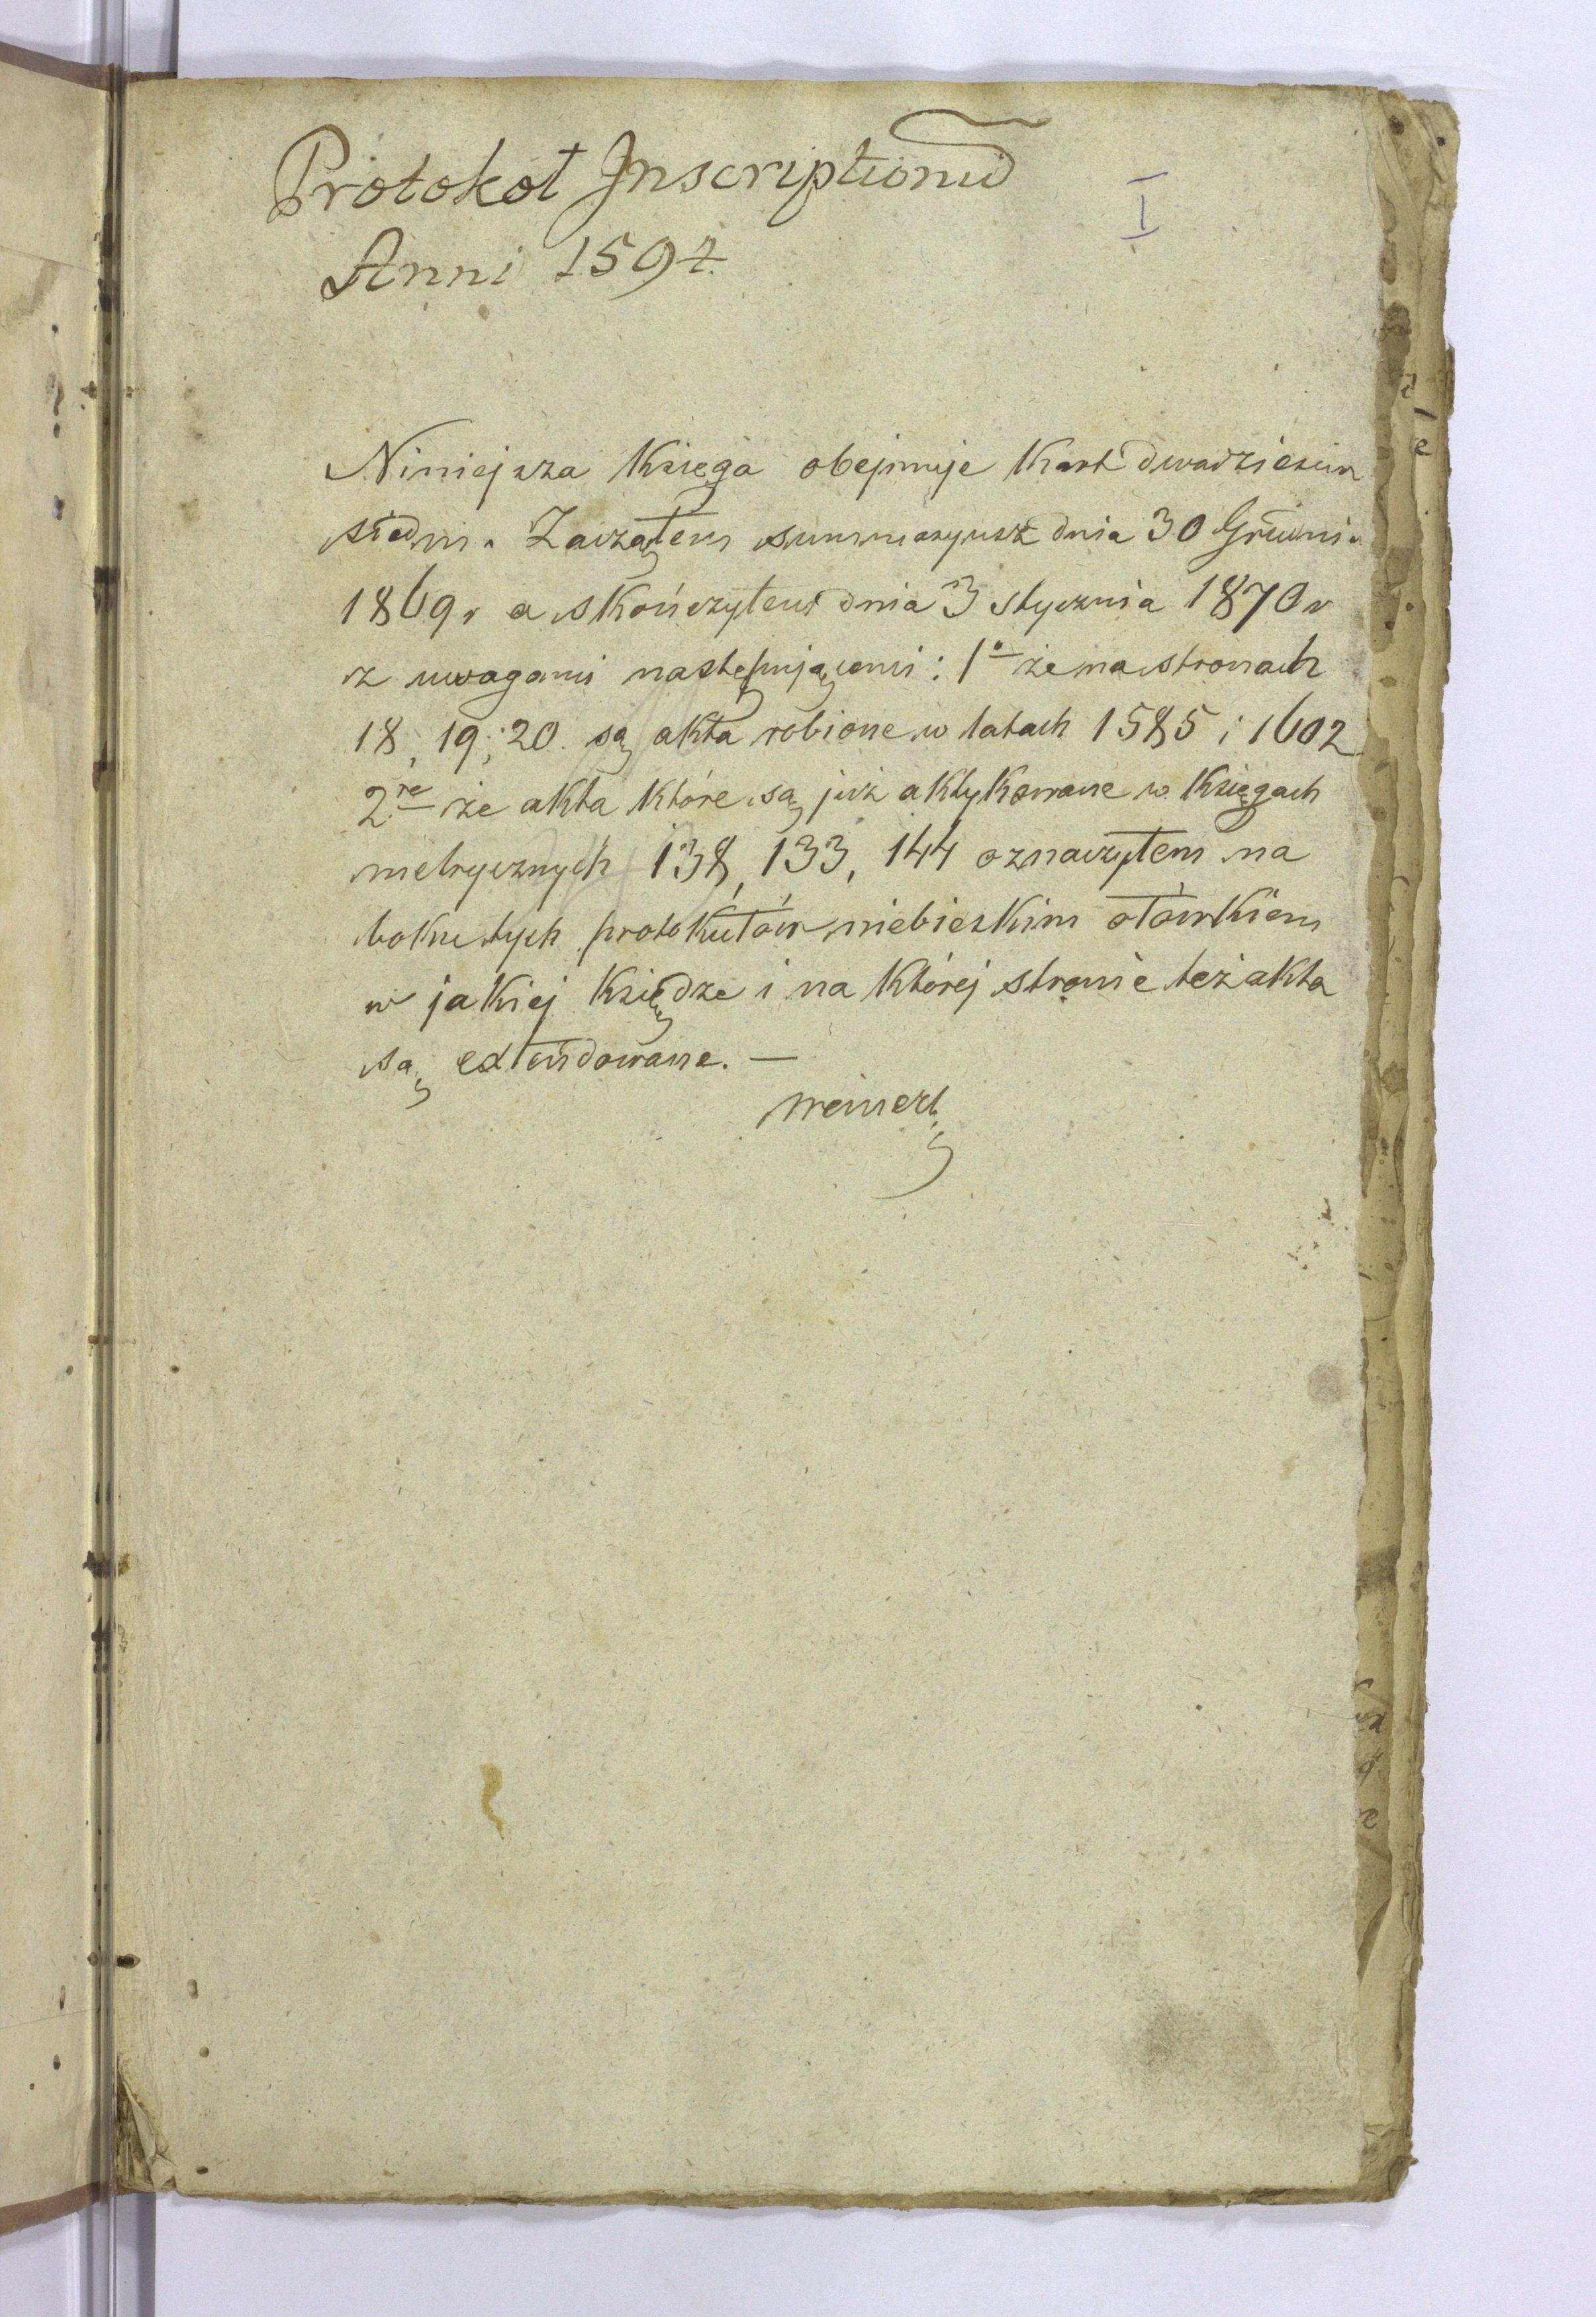 Protokoł Inscriptionū
I
Anni 1592.
Niniejsza Księga obejmuje Kart dwadzieścia
siedm. Zacząłem summaryusz dnia 30 Grudnia
1869 r a skończyłem dnia 3 stycznia 1870 r
z uwagami następującemi: 1o że na stronach
18, 19, 20. są akta robione w latach 1585 i 1602
2re że akta które są już aktykowane w Księgach
metrycznych 138, 133, 144 oznaczyłem na
boku tych protokułów niebieskim ołówkiem
w jakiej Księdze i na której stronie też akta
są extendowane. —
Weinert